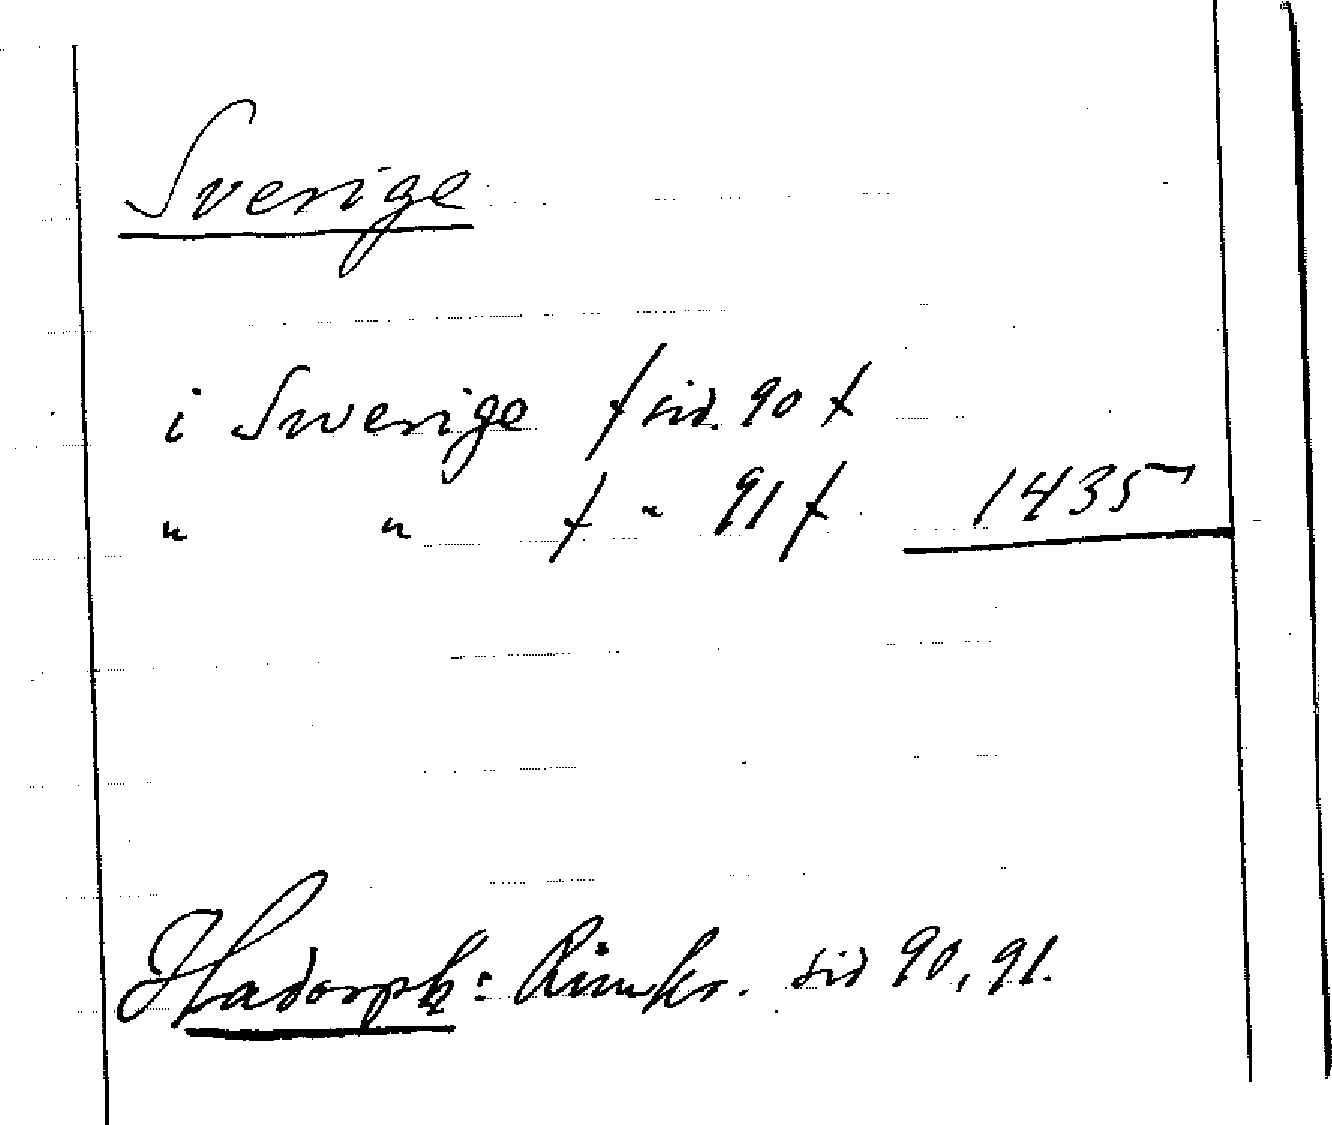 Sverige
i Swerige / sid. 90 /
" " / " 91 / 1435
Hadorph: Rimkr. sid 90, 91.